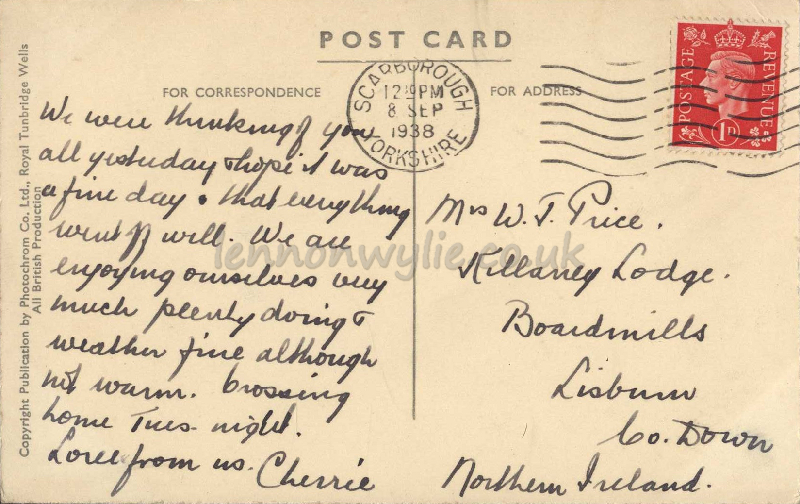 POST CARD
FOR CORRESPONDENCE
FOR ADDRESS
SCARBOROUGH
12 PM
8 SEP
1938
YORKSHIRE
POSTAGE
REVENUE
1D
Copyright Publication by Photochrom Co., Ltd., Royal Tunbridge Wells
All British Production
We were thinking of you
all yesterday & hope it was
a fine day & that everything
went off well. We are
enjoying ourselves very
much plenty doing &
weather fine although
not warm. Crossing
home Tues. night.
Love from us. Cherrie
Mrs W. J. Price.
Killaney Lodge.
Boardmills
Lisburn
Co. Down
Northern Ireland.
lennonwylie.co.uk